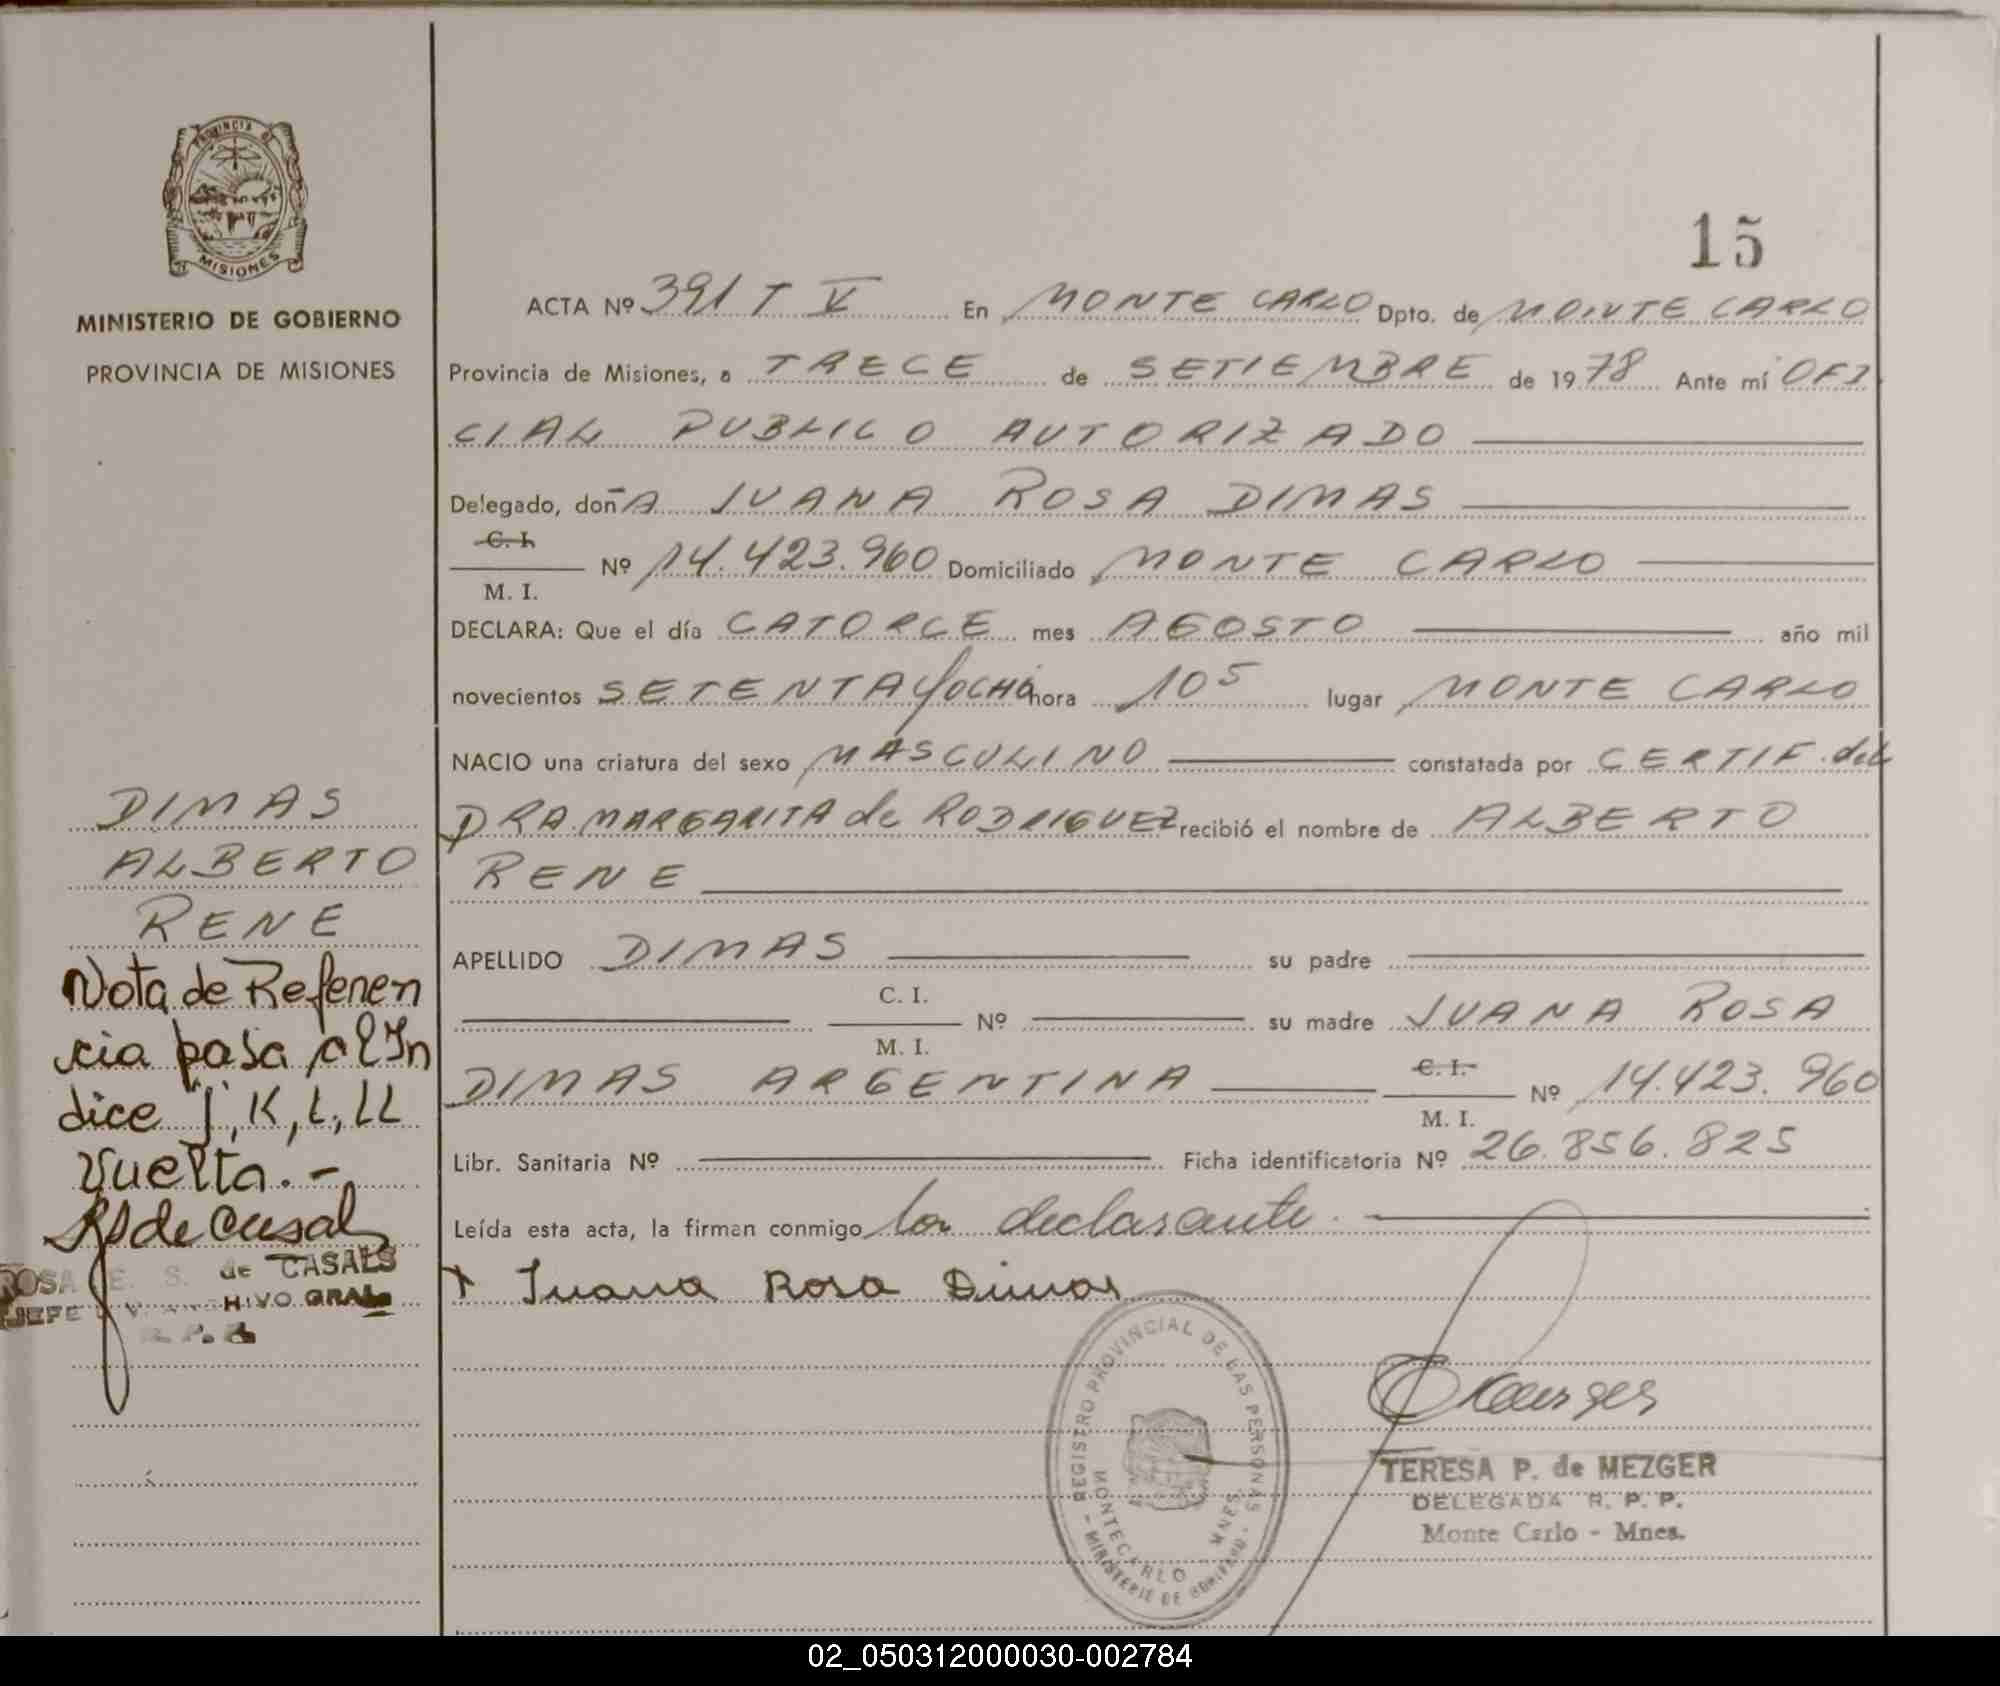 PROVINCIA DE
MISIONES
MINISTERIO DE GOBIERNO
PROVINCIA DE MISIONES
DIMAS
ALBERTO
RENE
Nota de Referen
cia pasa al In
dice "j", K, L, LL
vuelta.-
RS de Casals
ROSA E. S. de CASALS
JEFE DIV. ARCHIVO GRAL
R. P. P.
15
ACTA Nº 391 T V En MONTE CARLO Dpto. de MONTE CARLO
Provincia de Misiones, a TRECE de SETIEMBRE de 1978 Ante mí OFI
CIAL PUBLICO AUTORIZADO
Delegado, doñA JUANA ROSA DIMAS
C. I.
M. I. Nº 14.423.960 Domiciliado MONTE CARLO
DECLARA: Que el día CATORCE mes AGOSTO año mil
novecientos SETENTA yOCHO hora 10 5 lugar MONTE CARLO
NACIO una criatura del sexo MASCULINO constatada por CERTIF. del
DRA. MARGARITA de RODRIGUEZ recibió el nombre de ALBERTO
RENE
APELLIDO DIMAS su padre
C. I.
M. I. Nº su madre JUANA ROSA
DIMAS ARGENTINA C. I. M. I. Nº 14.423.960
Libr. Sanitaria Nº Ficha identificatoria Nº 26.856.825
Leída esta acta, la firman conmigo la declarante.
+ Juana Rosa Dimas
REGISTRO PROVINCIAL DE LAS PERSONAS
MONTECARLO MNES.
- MINISTERIO DE GOBIERNO -
TERESA P. de MEZGER
DELEGADA R. P. P.
Monte Carlo - Mnes.
02_050312000030-002784